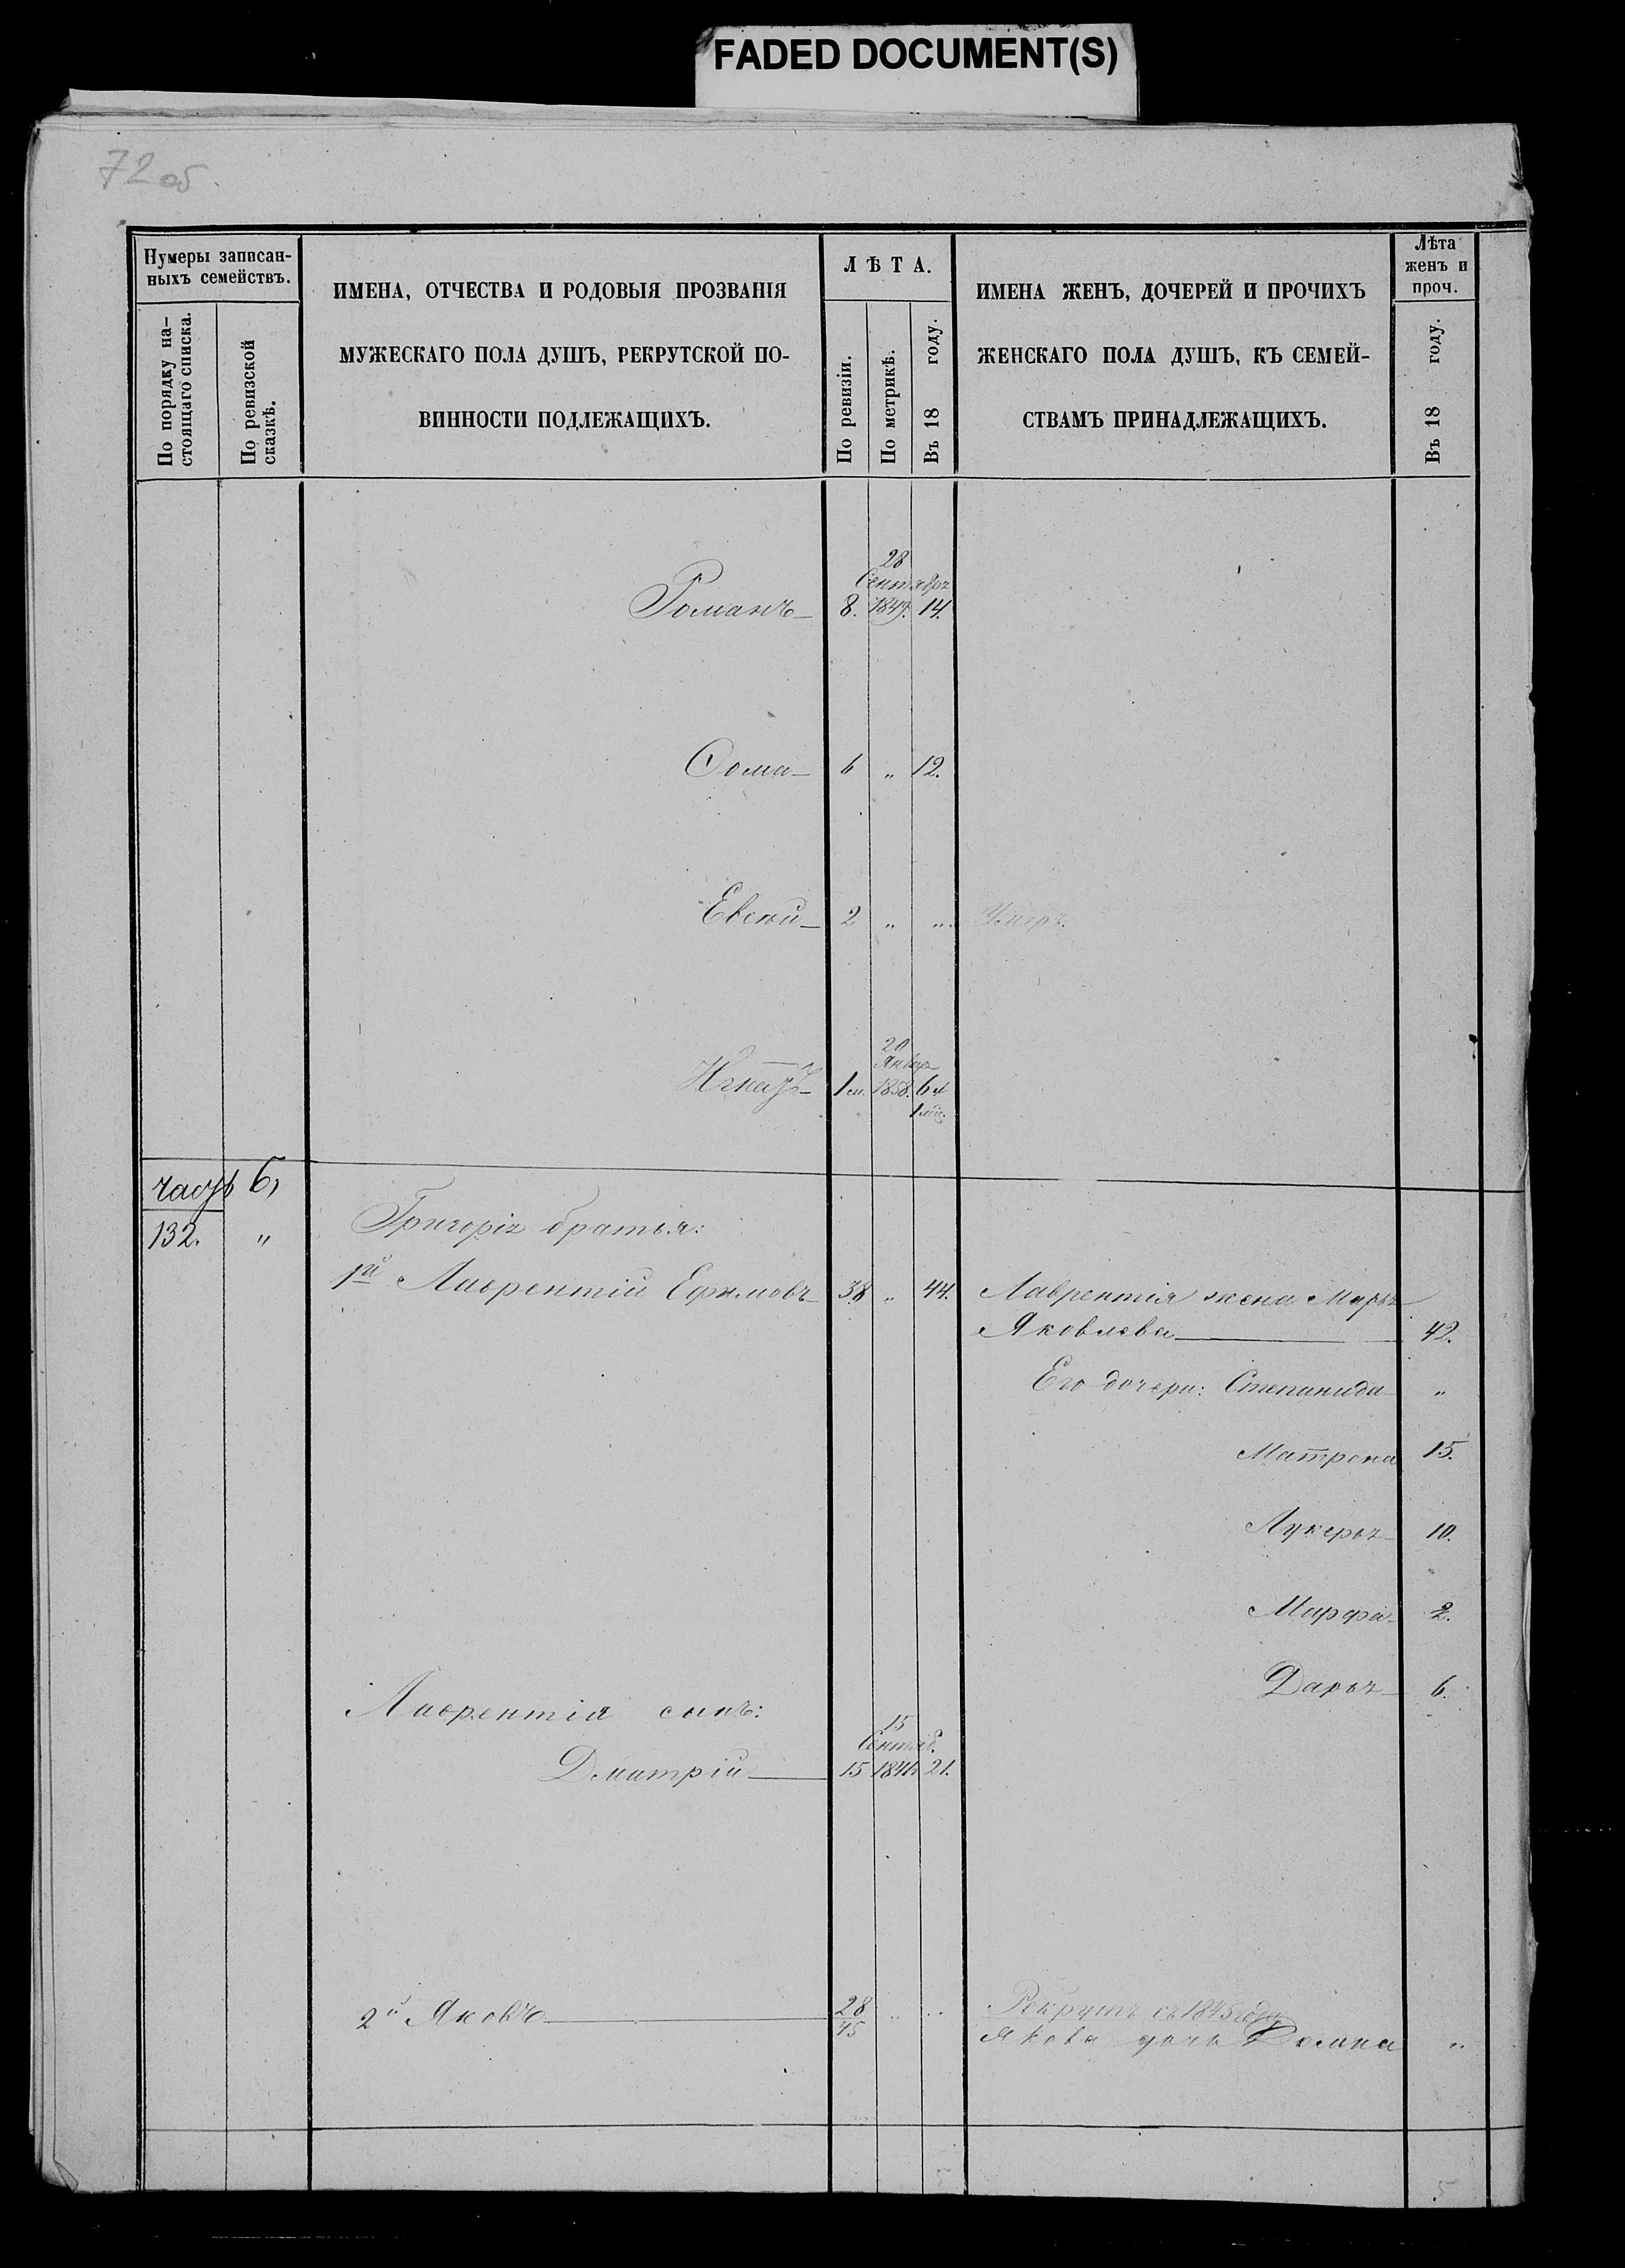 FADED DOCUMENT(S)
72 об.
Нумеры записан-
ныхъ семействъ.
По порядку на-
стоящаго списка.
По ревизской
сказкѣ.
ИМЕНА, ОТЧЕСТВА И РОДОВЫЯ ПРОЗВАНІЯ
МУЖЕСКАГО ПОЛА ДУШЪ, РЕКРУТСКОЙ ПО-
ВИННОСТИ ПОДЛЕЖАЩИХЪ.
ЛѢТА.
По ревизіи.
По метрикѣ.
Въ 18 году.
ИМЕНА ЖЕНЪ, ДОЧЕРЕЙ И ПРОЧИХЪ
ЖЕНСКАГО ПОЛА ДУШЪ, КЪ СЕМЕЙ-
СТВАМЪ ПРИНАДЛЕЖАЩИХЪ.
Лѣта
женъ и
проч.
Въ 18 году.
28
Сентября
Романъ 8. 1849. 14.
Ѳома 6 " 12.
Евсей 2 " " Умеръ.
20
Января
Игнатъ 1 м. 1858. 6 и
1 мѣс.
часть 6,
132. " Григорія братья:
1й Лаврентій Ефимовъ 38 " 44. Лаврентія жена Марья
Яковлева 42.
Его дочери: Степанида "
Матрона 15.
Лукерья 10.
Марфа 2.
Дарья 6.
Лаврентія сынъ:
15
Сентяб.
Дмитрій 15 21.
2й Яковъ 28 " " Рекрутъ съ 1845 года
45 Якова дочь Домна "
5